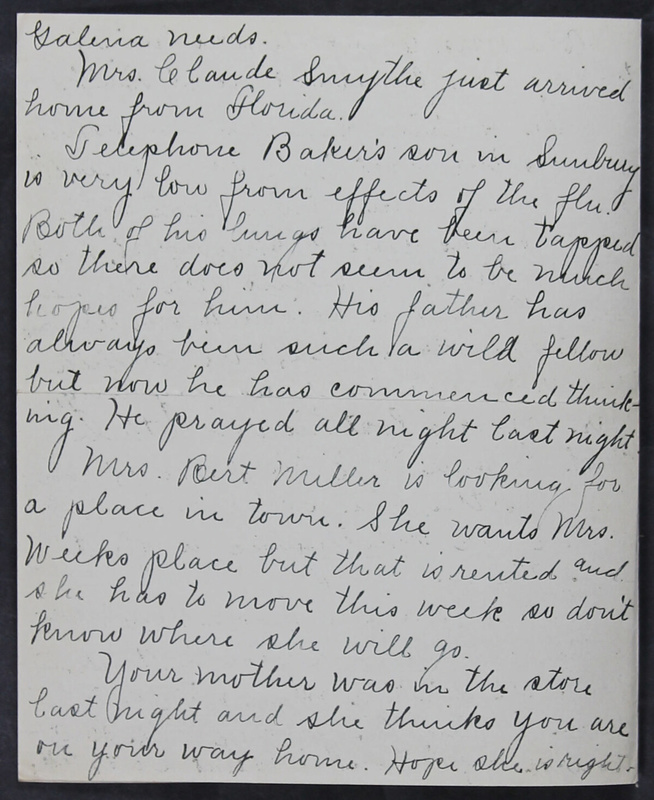 Galena needs.
Mrs. Claude Smythe just arrived
home from Florida.
Telephone Baker's son in Sunbury
is very low from effects of the flu.
Both of his lungs have been tapped
so there does not seem to be much
hopes for him. His father has
always been such a wild fellow
but now he has commenced think-
ing. He prayed all night last night.
Mrs. Bert Miller is looking for
a place in town. She wants Mrs.
Weeks place but that is rented and
she has to move this week so don't
know where she will go.
Your mother was in the store
last night and she thinks you are
on your way home. Hope she is right-